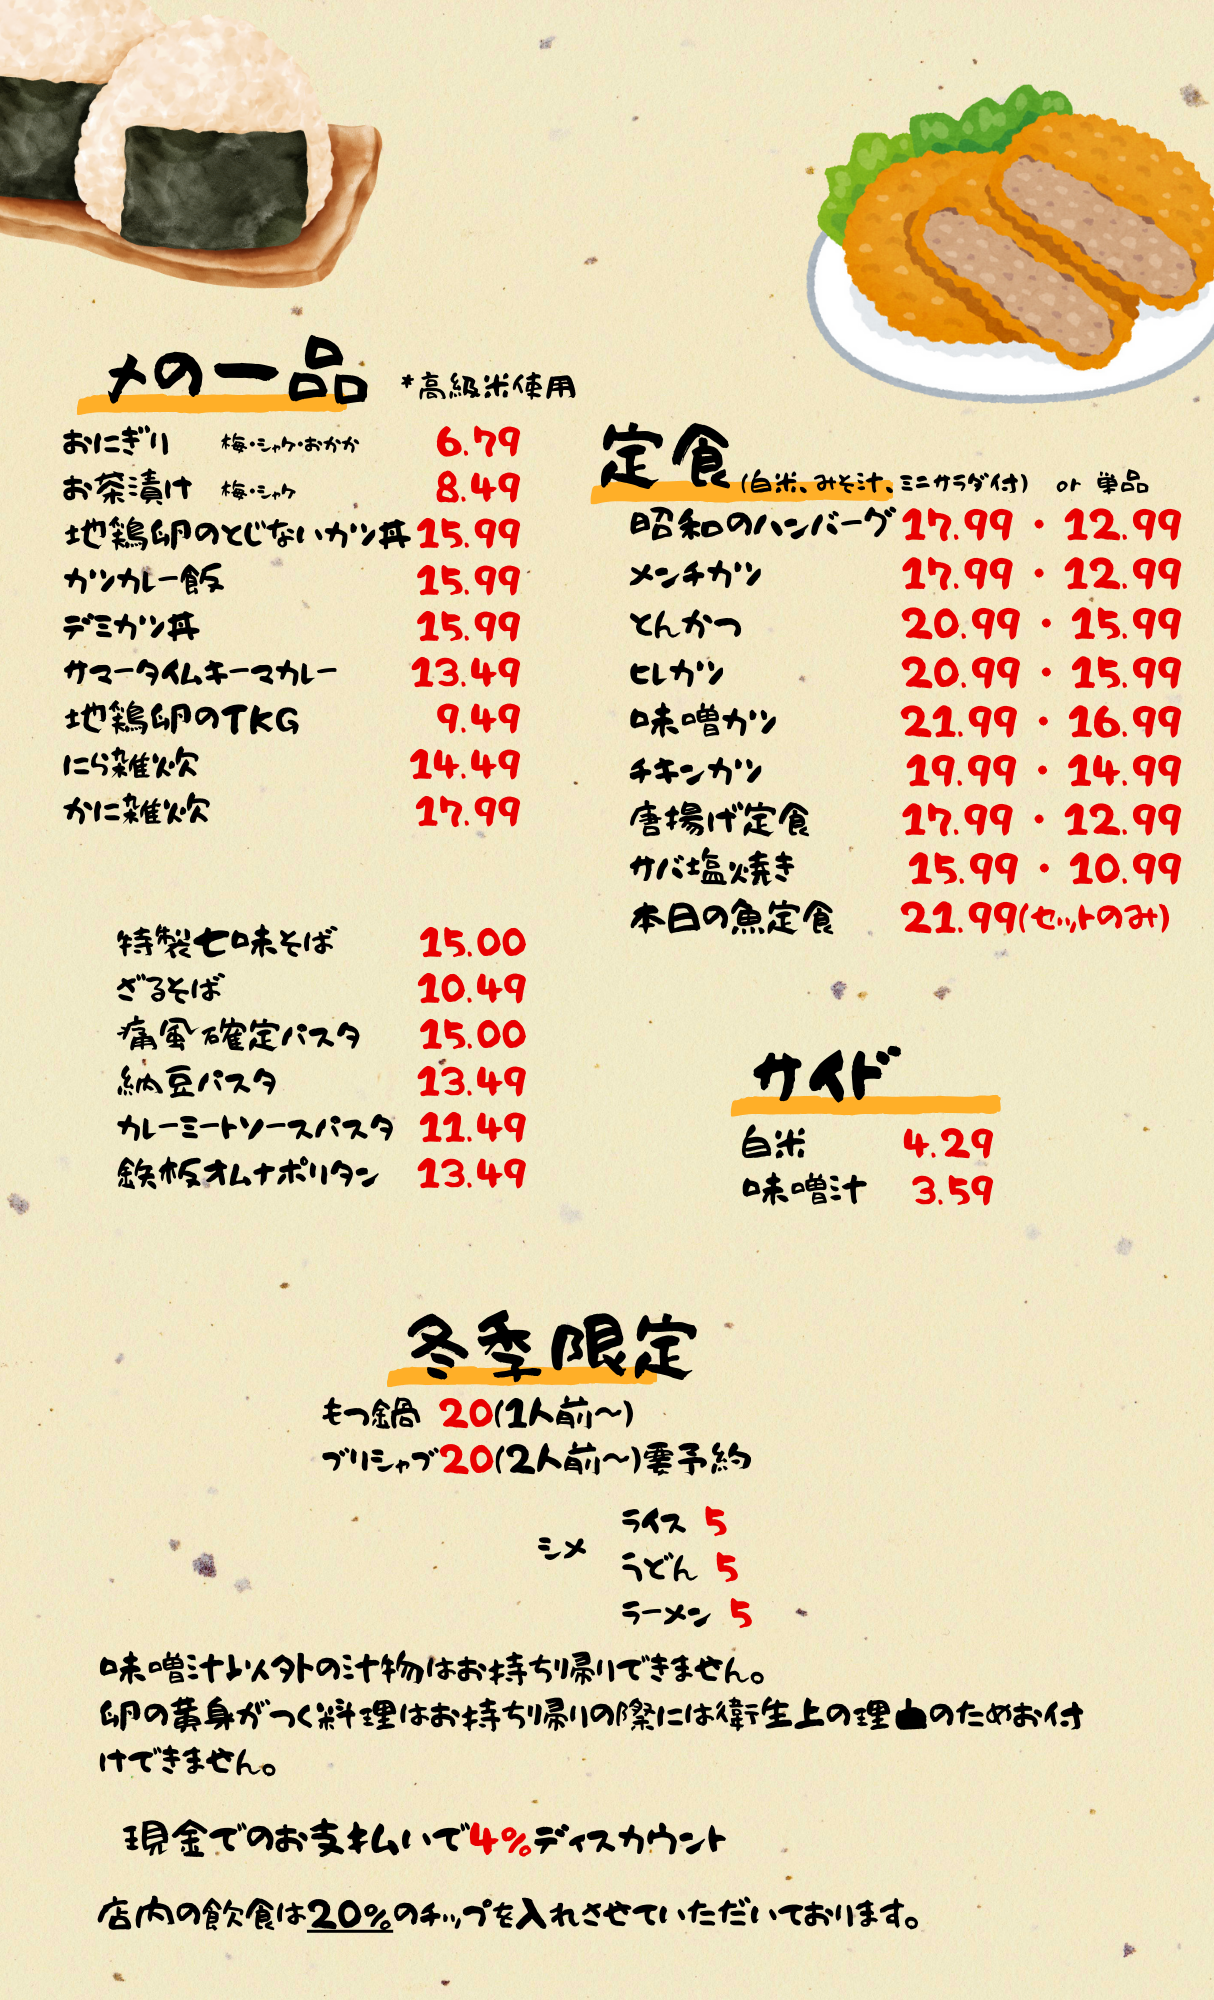 〆の一品 *高級米使用
おにぎり 梅・シャケ・おかか 6.79
お茶漬け 梅・シャケ 8.49
地鶏卵のとじないカツ丼 15.99
カツカレー飯 15.99
デミカツ丼 15.99
サマータイムキーマカレー 13.49
地鶏卵のTKG 9.49
にら雑炊 14.49
かに雑炊 17.99
特製七味そば 15.00
ざるそば 10.49
痛風確定パスタ 15.00
納豆パスタ 13.49
カレーミートソースパスタ 11.49
鉄板オムナポリタン 13.49
定食(白米、みそ汁、ミニサラダ付) or 単品
昭和のハンバーグ 17.99・12.99
メンチカツ 17.99・12.99
とんかつ 20.99・15.99
ヒレカツ 20.99・15.99
味噌カツ 21.99・16.99
チキンカツ 19.99・14.99
唐揚げ定食 17.99・12.99
サバ塩焼き 15.99・10.99
本日の魚定食 21.99(セットのみ)
サイド
白米 4.29
味噌汁 3.59
冬季限定
もつ鍋 20(1人前〜)
ブリシャブ20(2人前〜)要予約
シメ
ライス 5
うどん 5
ラーメン 5
味噌汁以外の汁物はお持ち帰りできません。
卵の黄身がつく料理はお持ち帰りの際には衛生上の理由のためお付
けできません。
現金でのお支払いで4%ディスカウント
店内の飲食は20%のチップを入れさせていただいております。